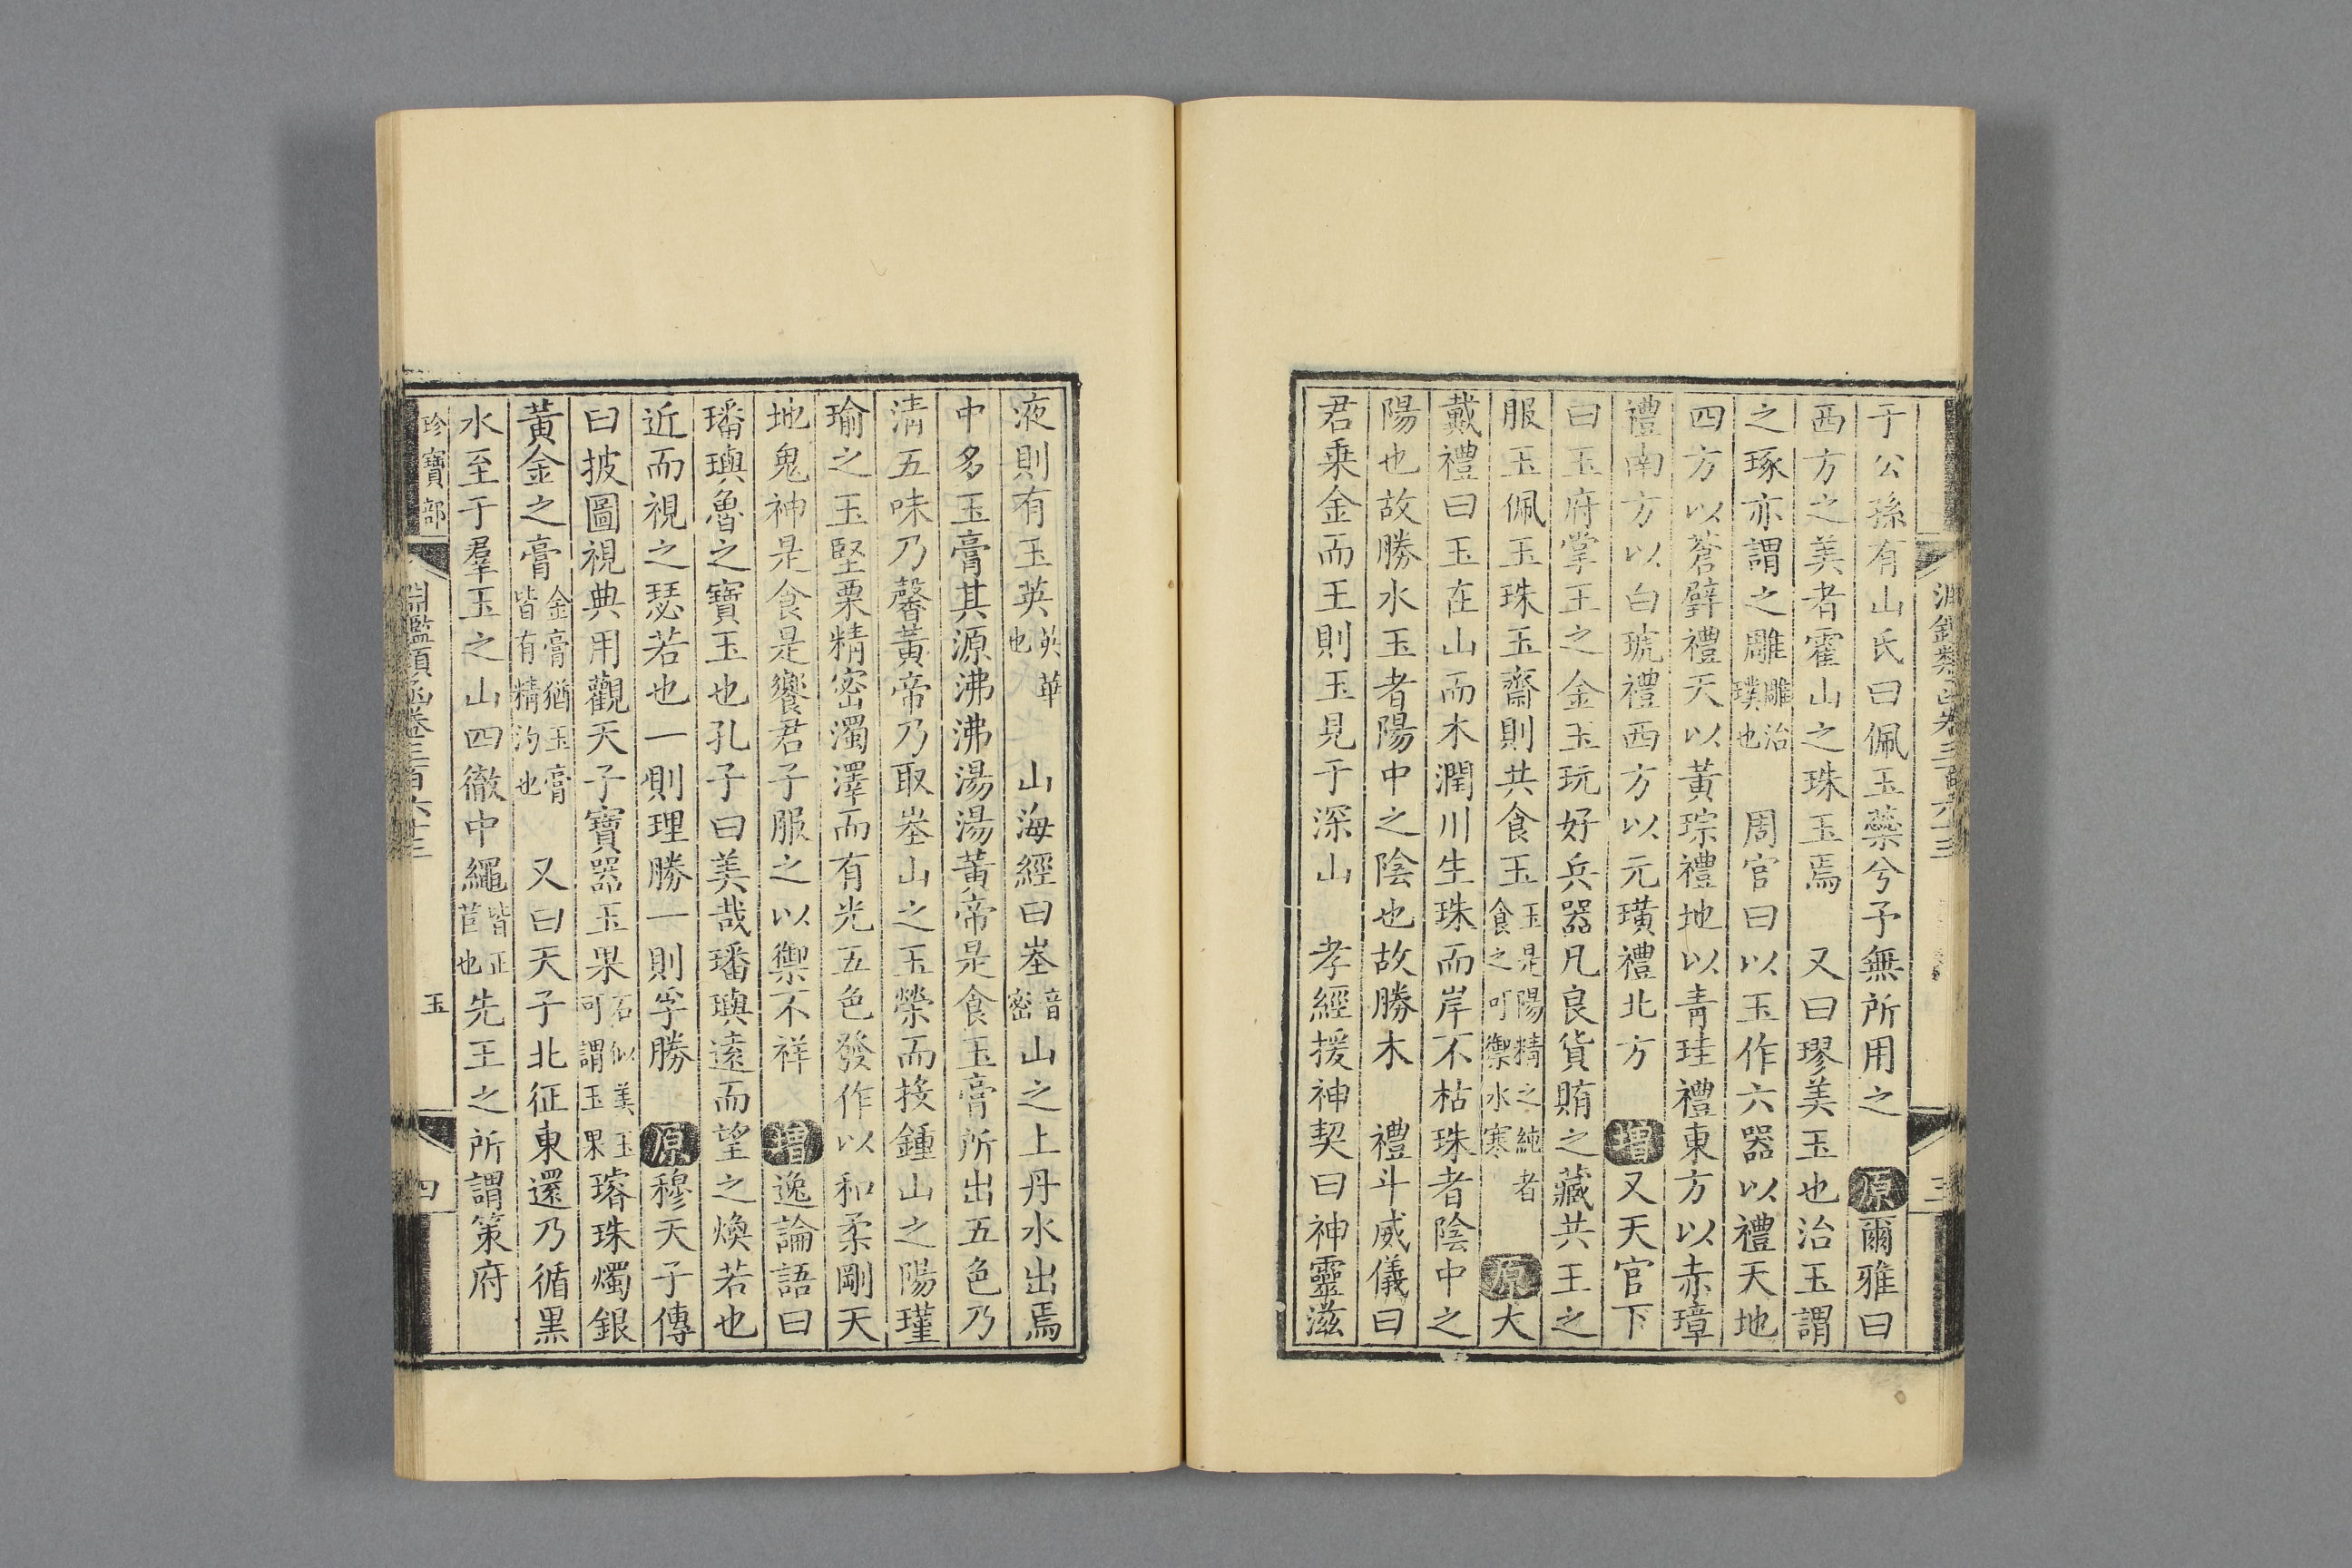 于公孫有山氏曰佩玉蘂兮予無所用之 原爾雅曰
西方之美者霍山之珠玉焉 又曰璆美玉也治玉謂
之琢亦謂之雕雕治璞也 周官曰以玉作六器以禮天地
四方以蒼璧禮天以黃琮禮地以青珪禮東方以赤璋
禮南方以白琥禮西方以元璜禮北方 增又天官下
曰玉府掌王之金玉玩好兵器凡良貨賄之藏共王之
服玉佩玉珠玉齋則共食玉玉是陽精之純者食之可禦水寒 原大
戴禮曰玉在山而木潤川生珠而岸不枯珠者陰中之
陽也故勝水玉者陽中之陰也故勝木 禮斗威儀曰
君乘金而王則玉見于深山 孝經援神契曰神靈滋
液則有玉英英華也 山海經曰峚音密山之上丹水出焉
中多玉膏其源沸沸湯湯黃帝是食玉膏所出五色乃
淸五味乃馨黃帝乃取峚山之玉榮而投鍾山之陽瑾
瑜之玉堅栗精密濁澤而有光五色發作以和柔剛天
地鬼神是食是饗君子服之以禦不祥 增逸論語曰
璠璵魯之寶玉也孔子曰美哉璠璵遠而望之煥若也
近而視之瑟若也一則理勝一則孚勝 原穆天子傳
曰披圖視典用觀天子寶器玉果石似美玉可謂玉果璿珠燭銀
黃金之膏金膏猶玉膏皆有精汋也 又曰天子北征東還乃循黑
水至于羣玉之山四徹中繩皆正苣也先王之所謂策府
珍寶部 淵鑑類函卷三百六十三 玉 四